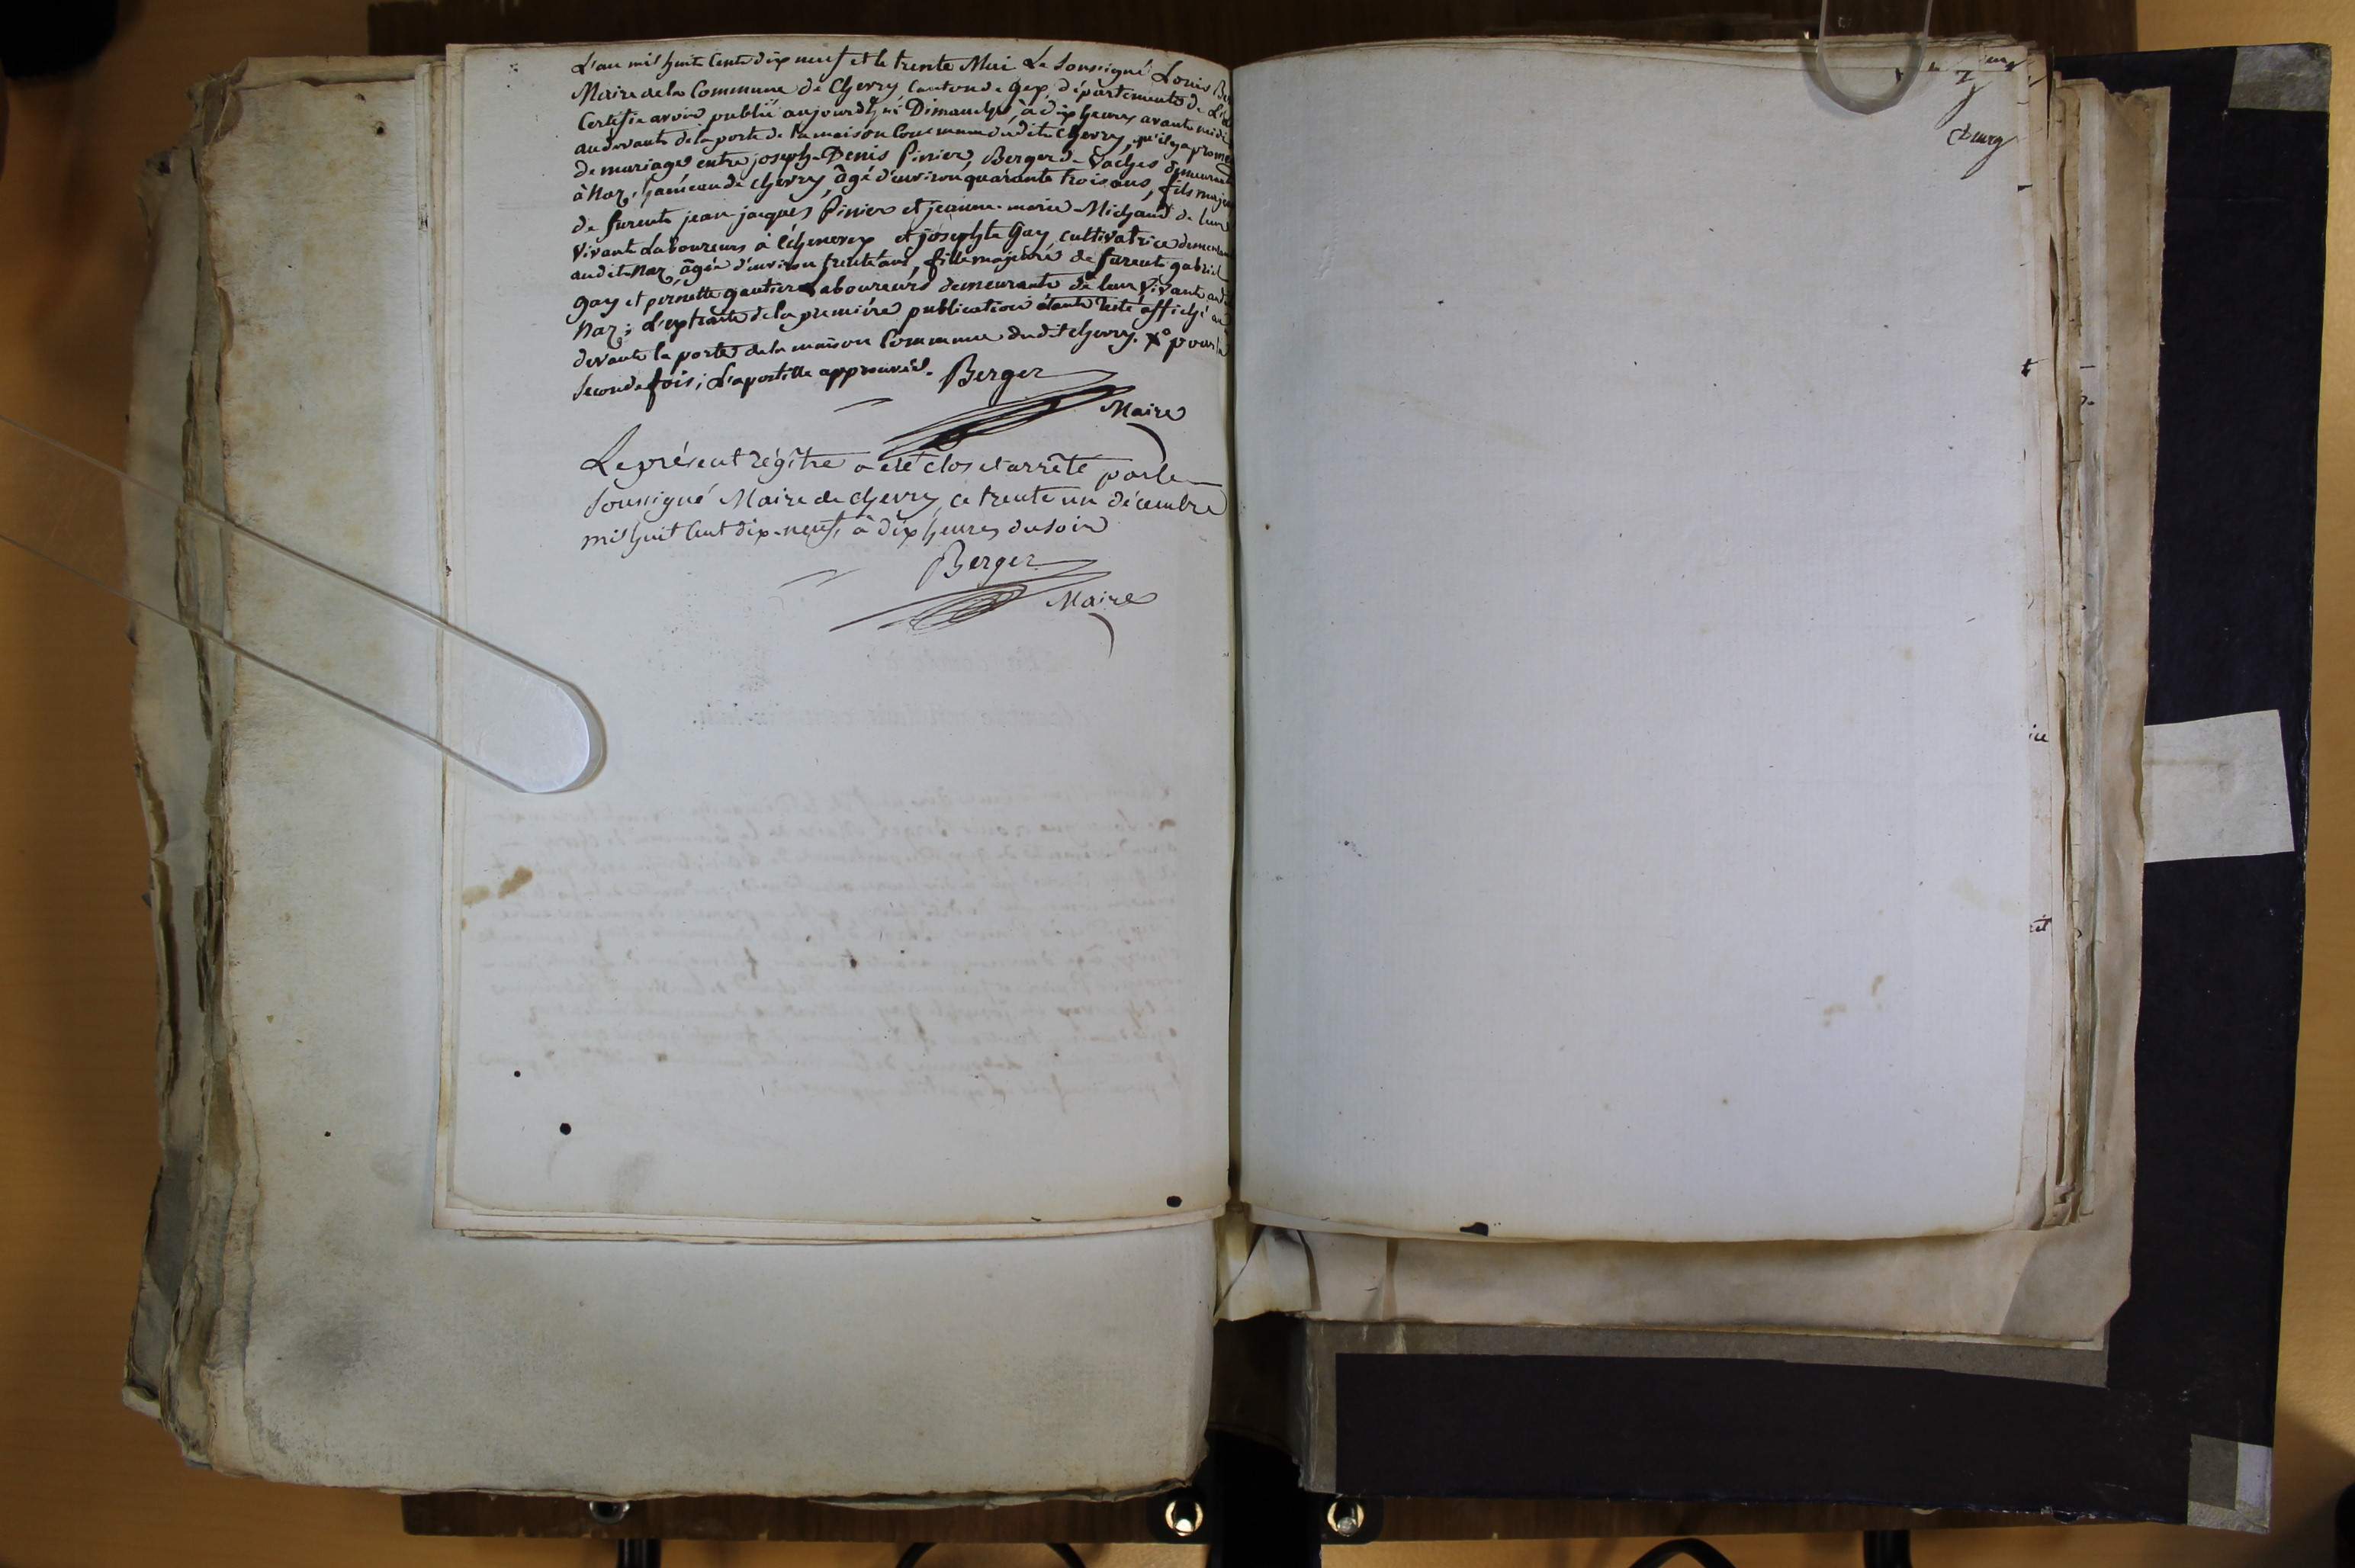 L'an mil huit cent dix neuf et le trente Mai Le Soussigné Louis Be
Maire de la Commune de Chevry, Canton de Gex, département de L'
Certifie avoir publié aujourd'hui Dimanche, à dix heures avant midi
audevant de la porte de la maison Commune dudit Chevry, qu'il y a prome
de mariage entre joseph-Denis Pinier, Berger de Vaches demeurant
à Naz, hameau de Chevry, âgé d'environ quarante trois ans, fils majeur
de furent jean-jacques Pinier et jeanne-marie Michaud de leur
Vivant Laboureurs à Echenevex, et josephte Gay, Cultivatrice demeurant
audit Naz, âgée d'environ trente ans, fille majeure de furent gabriel
gay et pernette gautier Laboureurs demeurant de leur Vivant audit
Naz; L'extrait de la première publication étant resté affiché au
devant la porte de la maison Commune dudit Chevry. X° pour la
Seconde fois; L'apostille approuvée. Berger
Maire
Le présent régître a été clos et arrêté par le
Soussigné Maire de chevry, ce trente un décembre
mil huit Cent dix-neuf, à dix heures du soir
Berger
Maire